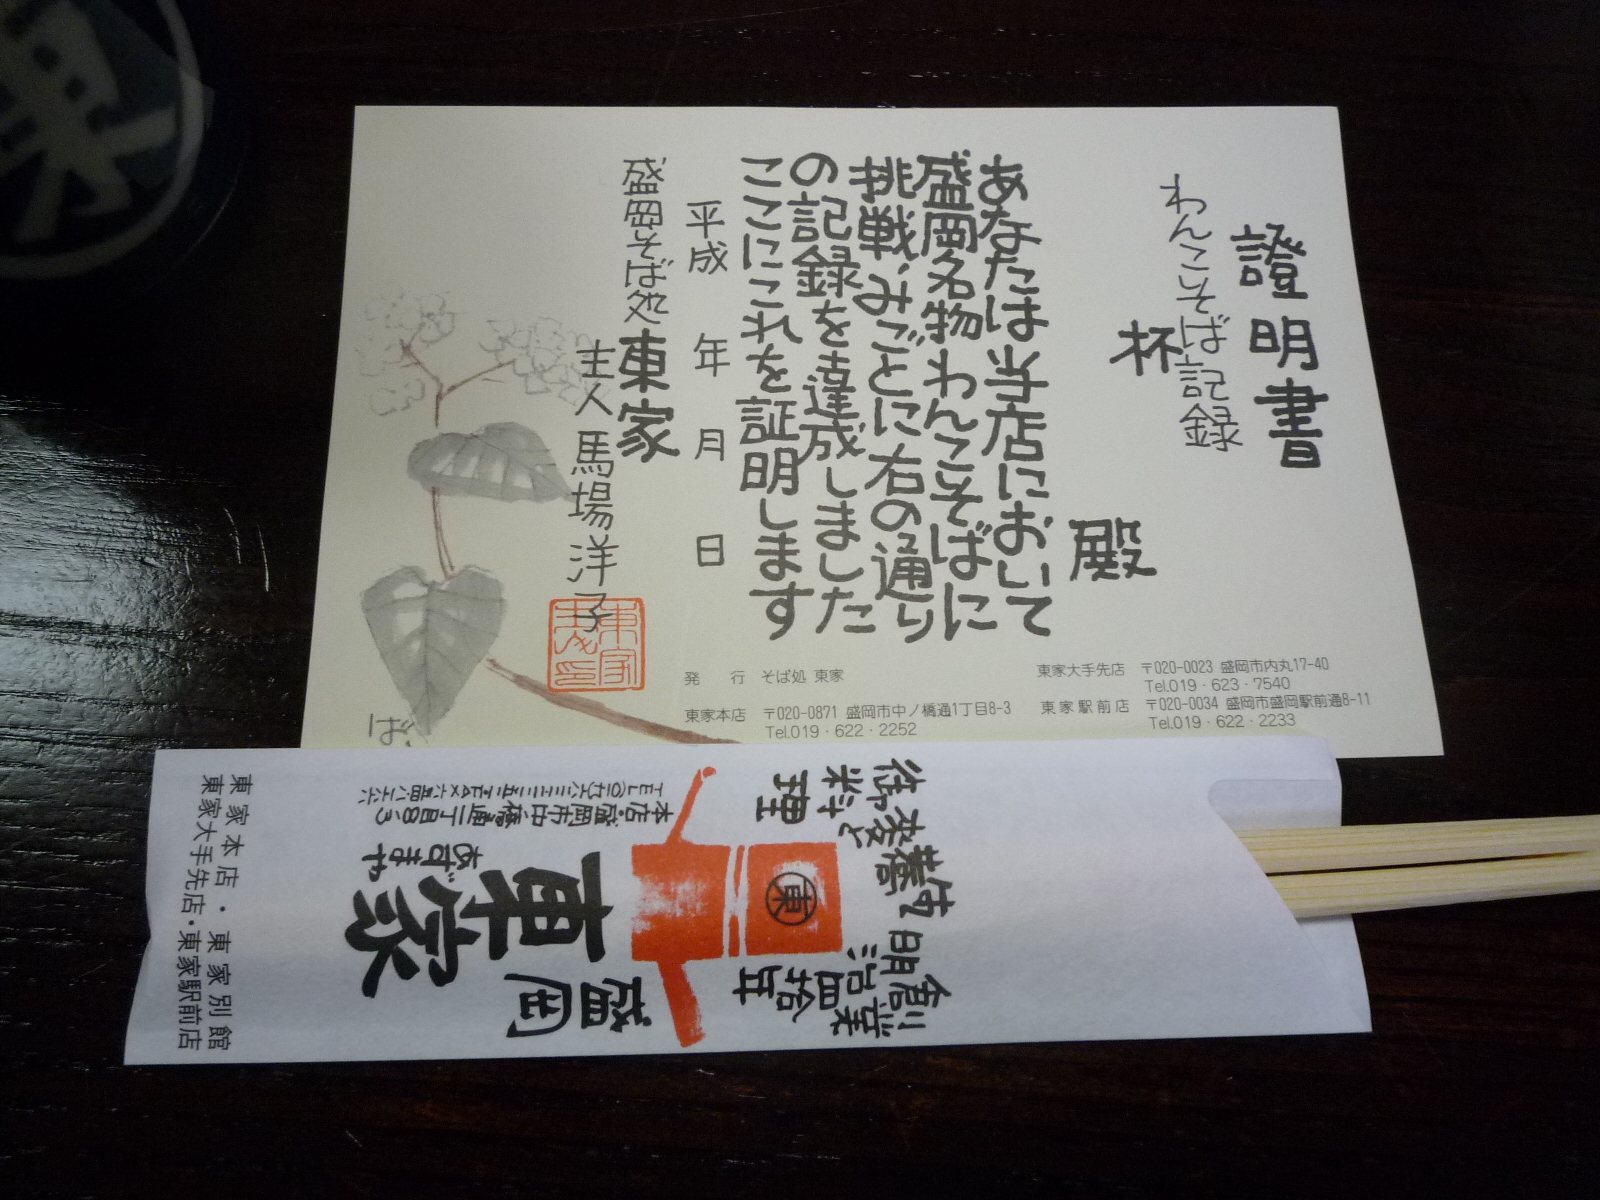 證明書
わんこそば記録
杯
殿
あなたは当店において
盛岡名物わんこそばに
挑戦、みごとに右の通り
の記録を達成しました
ここにこれを証明します
平成 年 月 日
盛岡そば処 東家
主人 馬場洋子
発 行 そば処 東家
東家本店 〒020-0871 盛岡市中ノ橋通1丁目8-3
Tel.019・622・2252
東家大手先店 〒020-0023 盛岡市内丸17-40
Tel.019・623・7540
東家駅前店 〒020-0034 盛岡市盛岡駅前通8-11
Tel.019・622・2233
ば
創業
明治四拾年
御蕎麦と
料理
東
盛岡
東家
あずまや
本店・盛岡市中ノ橋通一丁目8-3
東家本店・東家別館
東家大手先店・東家駅前店
東